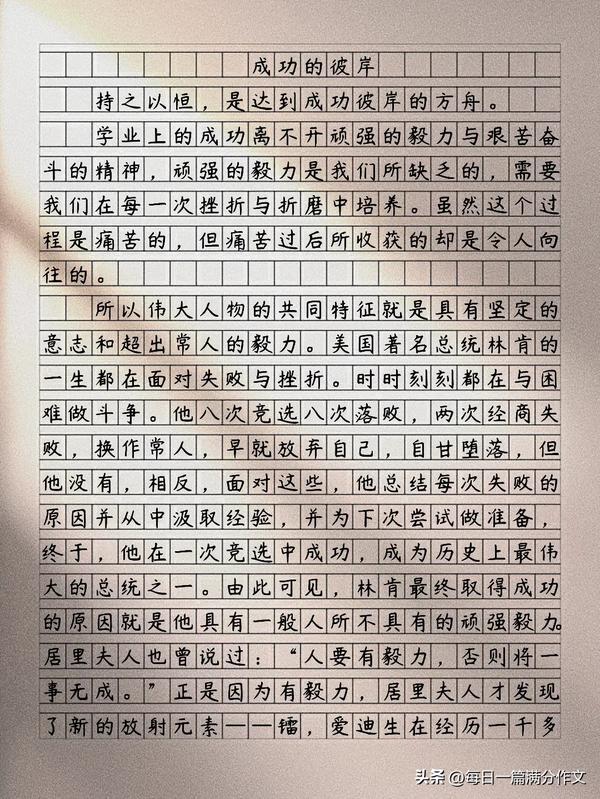 成功的彼岸
持之以恒，是达到成功彼岸的方舟。
学业上的成功离不开顽强的毅力与艰苦奋
斗的精神，顽强的毅力是我们所缺乏的，需要
我们在每一次挫折与折磨中培养。虽然这个过
程是痛苦的，但痛苦过后所收获的却是令人向
往的。
所以伟大人物的共同特征就是具有坚定的
意志和超出常人的毅力。美国著名总统林肯的
一生都在面对失败与挫折。时时刻刻都在与困
难做斗争。他八次竞选八次落败，两次经商失
败，换作常人，早就放弃自己，自甘堕落，但
他没有，相反，面对这些，他总结每次失败的
原因并从中汲取经验，并为下次尝试做准备，
终于，他在一次竞选中成功，成为历史上最伟
大的总统之一。由此可见，林肯最终取得成功
的原因就是他具有一般人所不具有的顽强毅力。
居里夫人也曾说过：“人要有毅力，否则将一
事无成。”正是因为有毅力，居里夫人才发现
了新的放射元素——镭，爱迪生在经历一千多
头条 @每日一篇满分作文